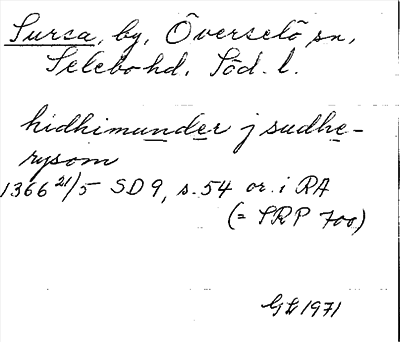 Sursa, by, Överselö sn,
Selebo hd, Söd. l.
hidhimunder j sudhe-
rysom
1366 21/5 SD 9, s. 54 or. i RA
(= SRP 700)
1971